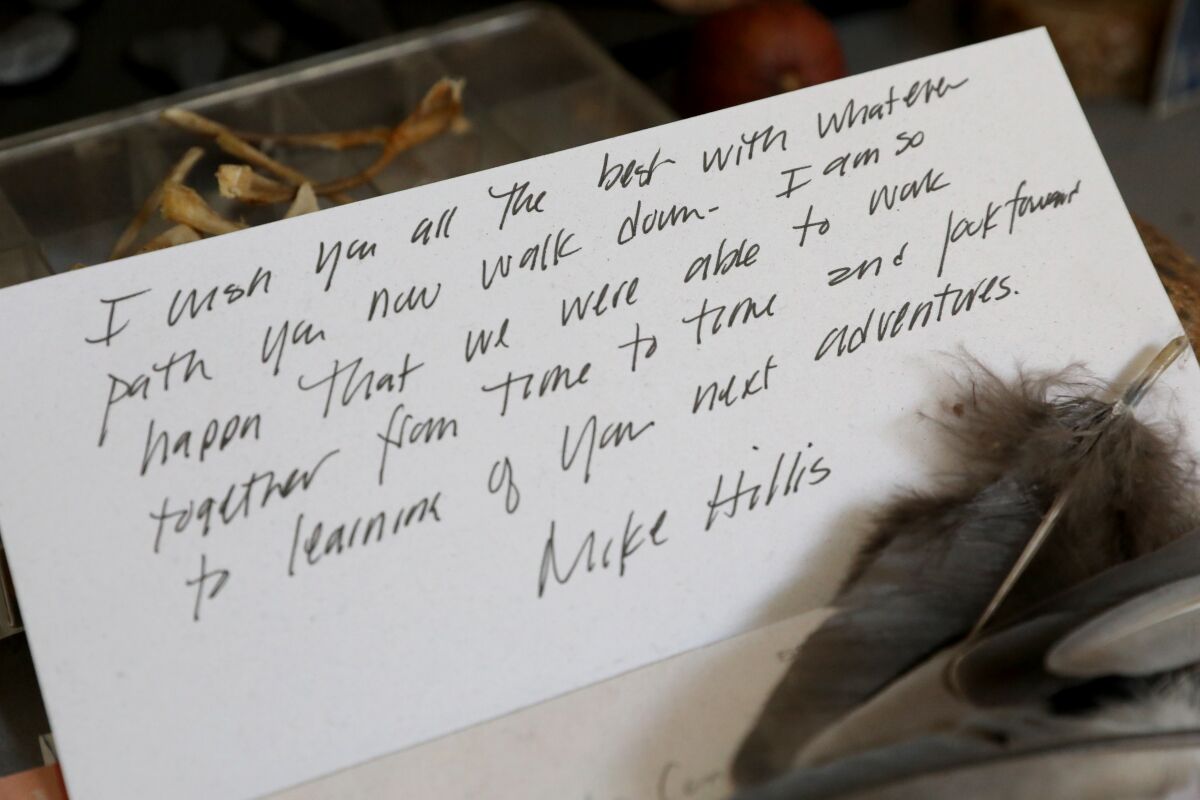 I wish you all the best with whatever
path you now walk down. I am so
happy that we were able to work
together from time to time and look forward
to learning of your next adventures.
Mike Hillis